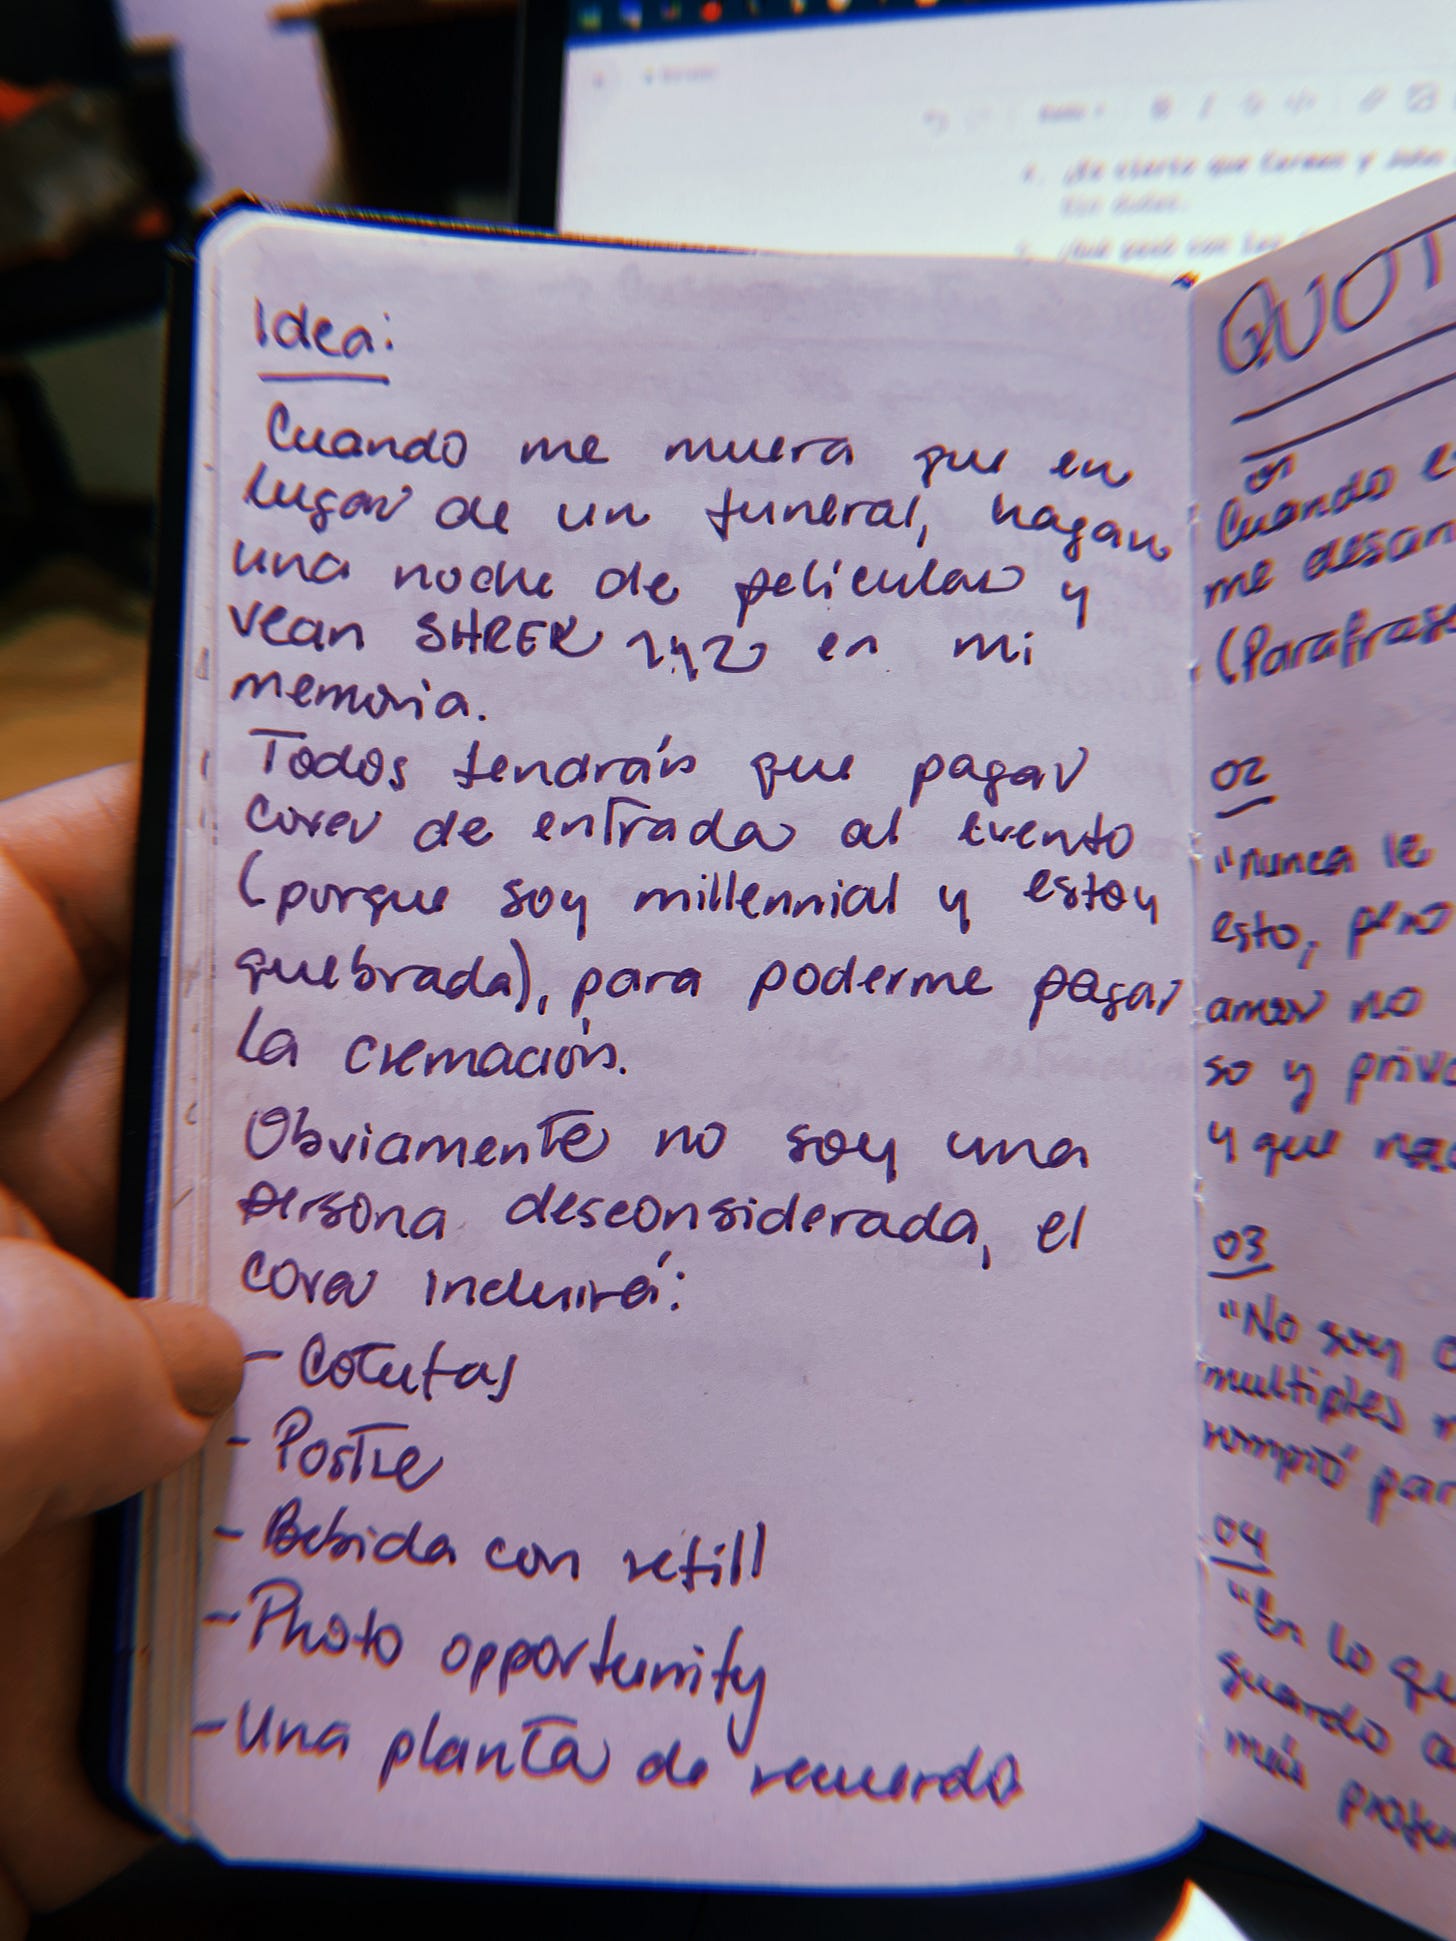 Idea:
Cuando me muera que en
lugar de un funeral, hagan
una noche de películas y
vean SHREK 1 y 2 en mi
memoria.
Todos tendrán que pagar
cover de entrada al evento
(porque soy millennial y estoy
quebrada), para poderme pagar
la cremación.
Obviamente no soy una
persona desconsiderada, el
cover incluirá:
- Cotufas
- Postre
- Bebida con refill
- Photo opportunity
- Una planta de recuerdo
QUOT
01
Cuando e
me desan
(Parafras
02
"nunca le
esto, pero
amor no
so y priv
y que nac
03
"No soy
multiples
rompió par
04
"En lo qu
guardo a
más profu
¿Es cierto que Carmen y John
sin dudas.
¿Qué pasó con